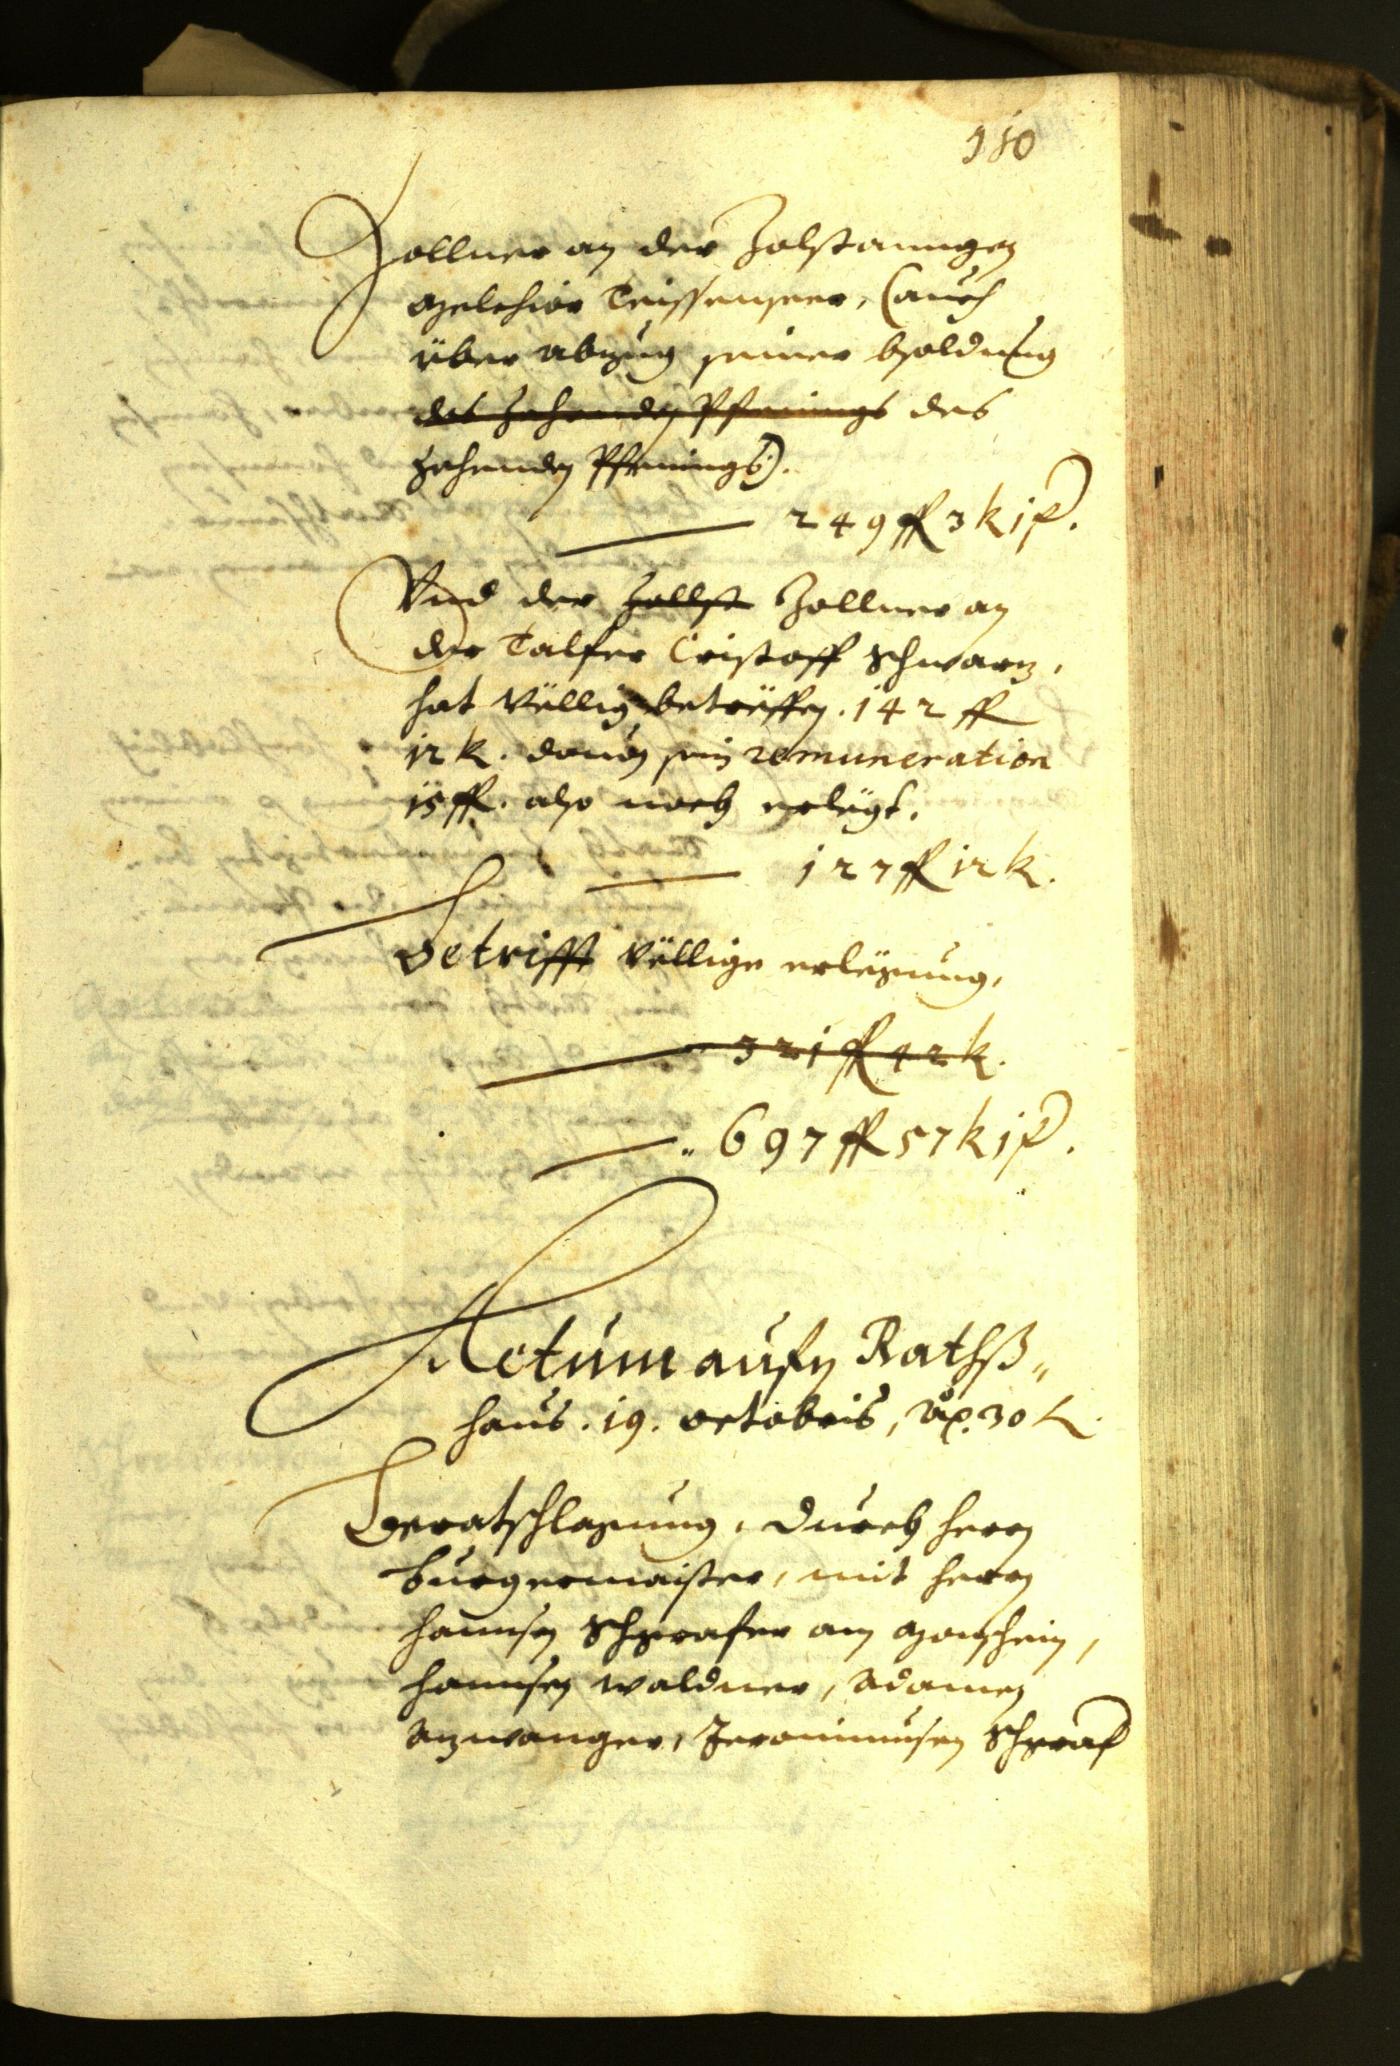 180
Zollner an der Zolstanngen
Melchior Teissenseer, (auch
über abzug seiner bsoldung
des zehenden Pfenings des
zehenden Pfenings).
249 fl 3 k 1 P.
Vnd der Zollst Zollner an
der Talfer Cristoff Schwarz,
hat Völlig betroffen. 142 fl
12 k. dauon sein remuneration
15 fl. also noch erlegt.
127 fl 12 k.
Betrifft Völlige erlegung,
321 fl 42 k.
697 fl 57 k 1 P.
Actum aufn Rathß„
haus. 19. octobris, 30
Beratschlagung, durch herrn
burgermaister, mit herrn
hannsen Schgrafer am
hannsen Waldner, Adamen
Anwanger, Jeronimusen Schgraf